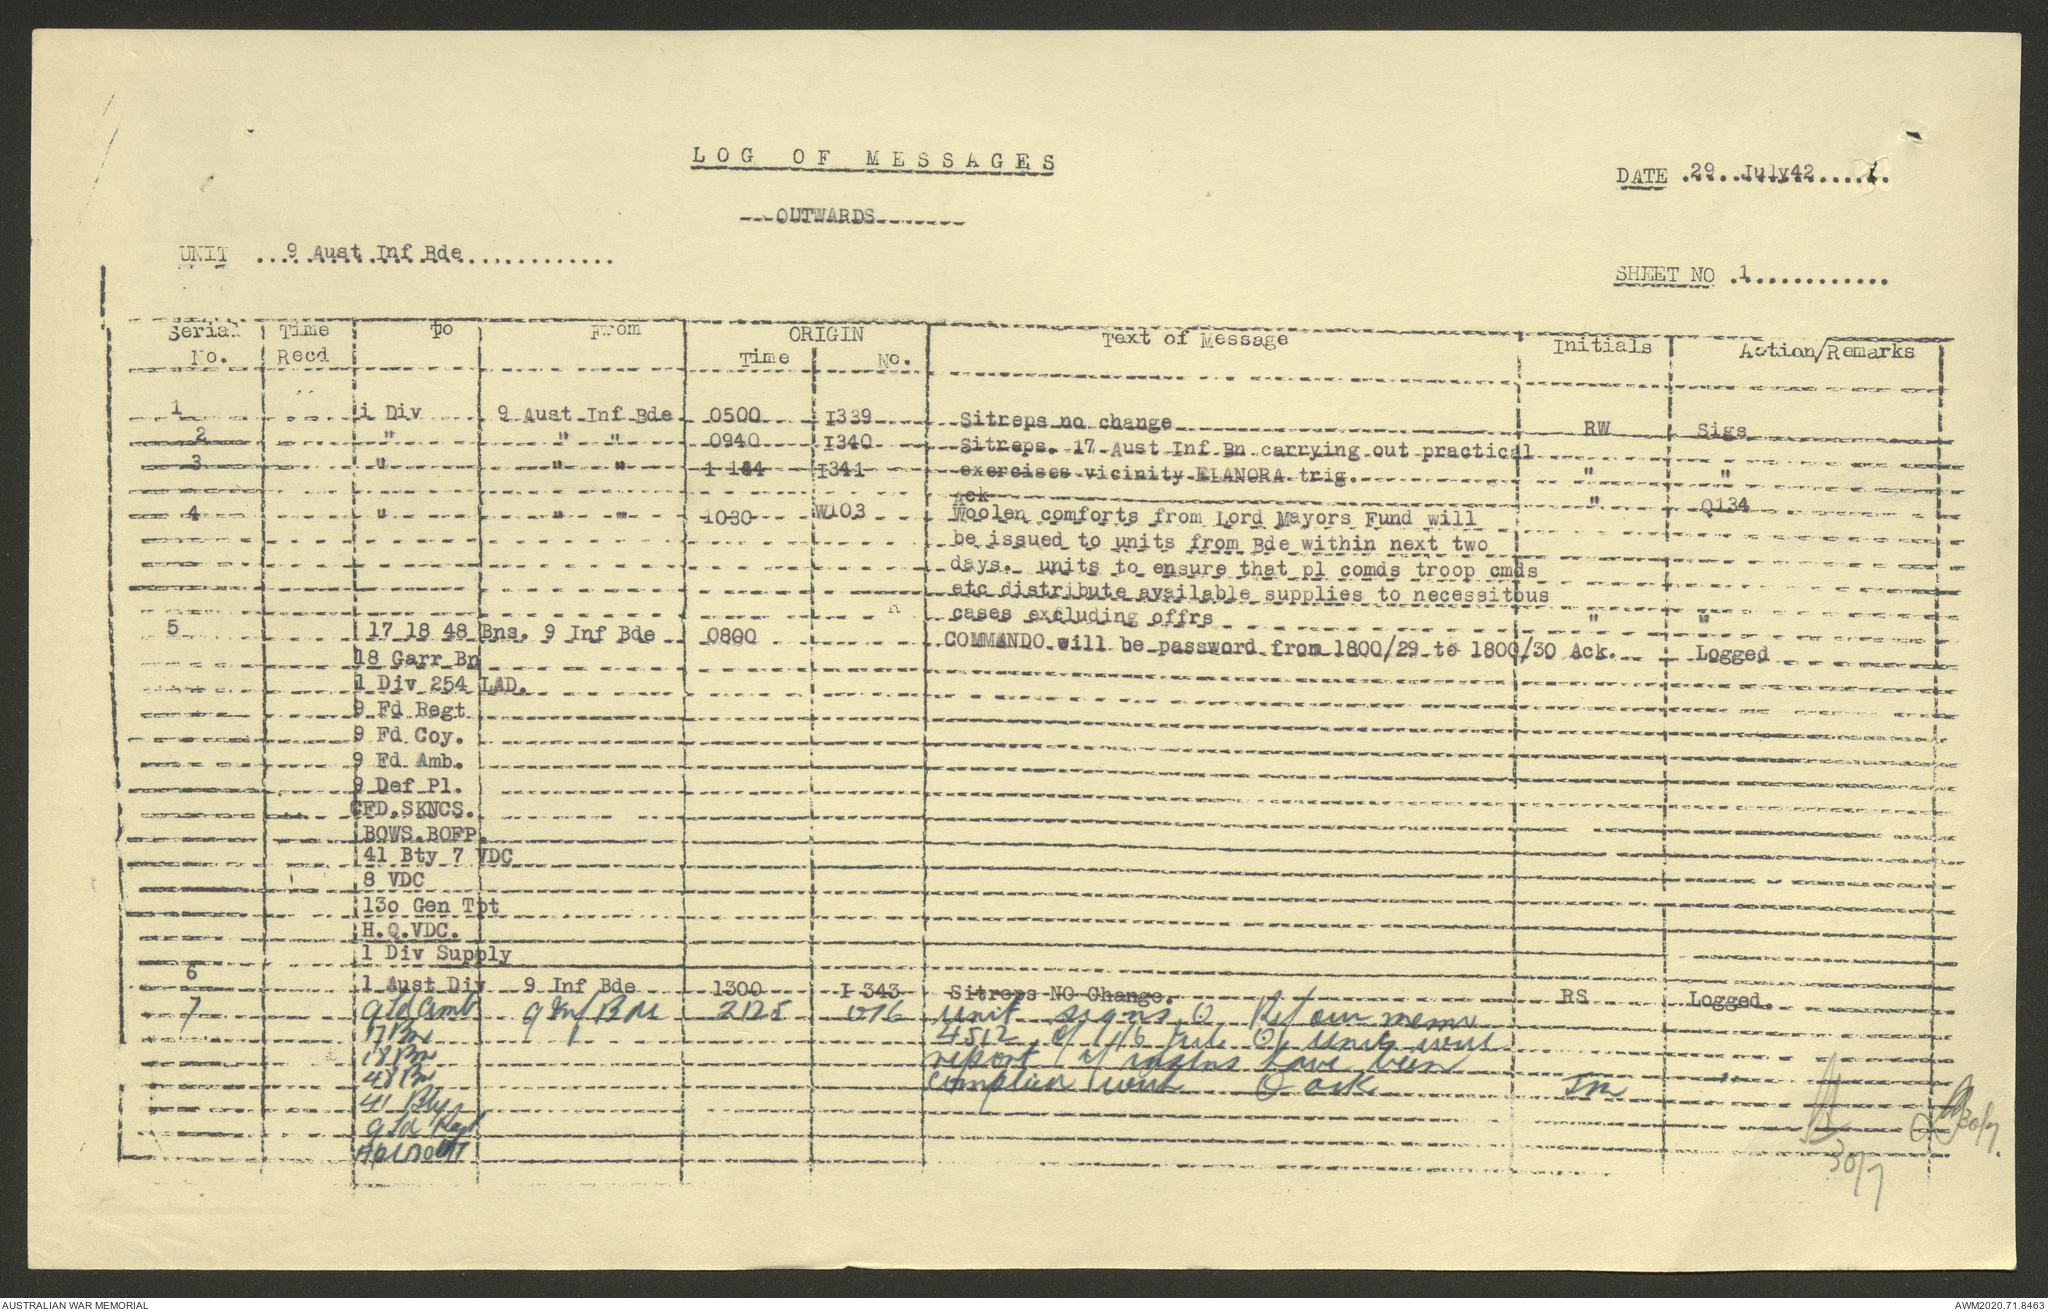 LOG OF MESSAGES
DATE 29 July 42
OUTWARDS
UNIT 9 Aust Inf Bde
SHEET NO 1
Serial No. Time Recd To From ORIGIN Time No. Text of Message Initials Action/Remarks
1 i Div 9 Aust Inf Bde 0500 I339 Sitreps no change RW Sigs
2 " " " 0940 I340 Sitreps. 17 Aust Inf Bn carrying out practical
3 " " " I341 exercises vicinity ELANORA trig. " "
Ack " Q134
4 " " " 1030 W103 Woolen comforts from Lord Mayors Fund will
be issued to units from Bde within next two
days. units to ensure that pl comds troop cmds
etc distribute available supplies to necessitous
cases excluding offrs " "
5 17 18 48 Bns. 9 Inf Bde 0800 COMMANDO will be password from 1800/29 to 1800/30 Ack. Logged
18 Garr Bn
1 Div 254 LAD.
9 Fd Regt
9 Fd Coy.
9 Fd Amb.
9 Def Pl.
CFD.SKNCS.
BOWS.BOFP.
41 Bty 7 VDC
8 VDC
13o Gen Tpt
H.Q.VDC.
1 Div Supply
6 1 Aust Div 9 Inf Bde 1300 I 343 Sitreps NO Change. RS Logged.
7 9 Fd Amb 9 Inf Bde 2125 unit signs O Ref our memo
17 Bn 4512 of 1/16 O units
18 Bn report if have been
48 Bn complied with O ack "
41 Bty
9 Fd Regt
30/7
30/7.
AUSTRALIAN WAR MEMORIAL
AWM2020.71.8463